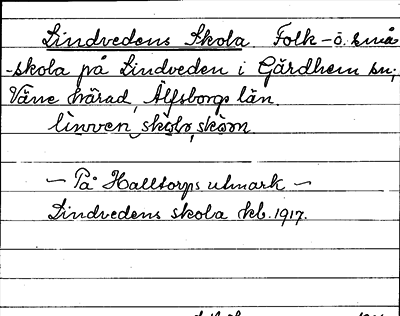 Lindvedens Skola Folk- o. små
-skola på Lindveden i Gärdhem sn,
Väne härad, Älfsborgs län.
linven skolo, skoon
— På Halltorps utmark —
Lindvedens skola kb. 1917.